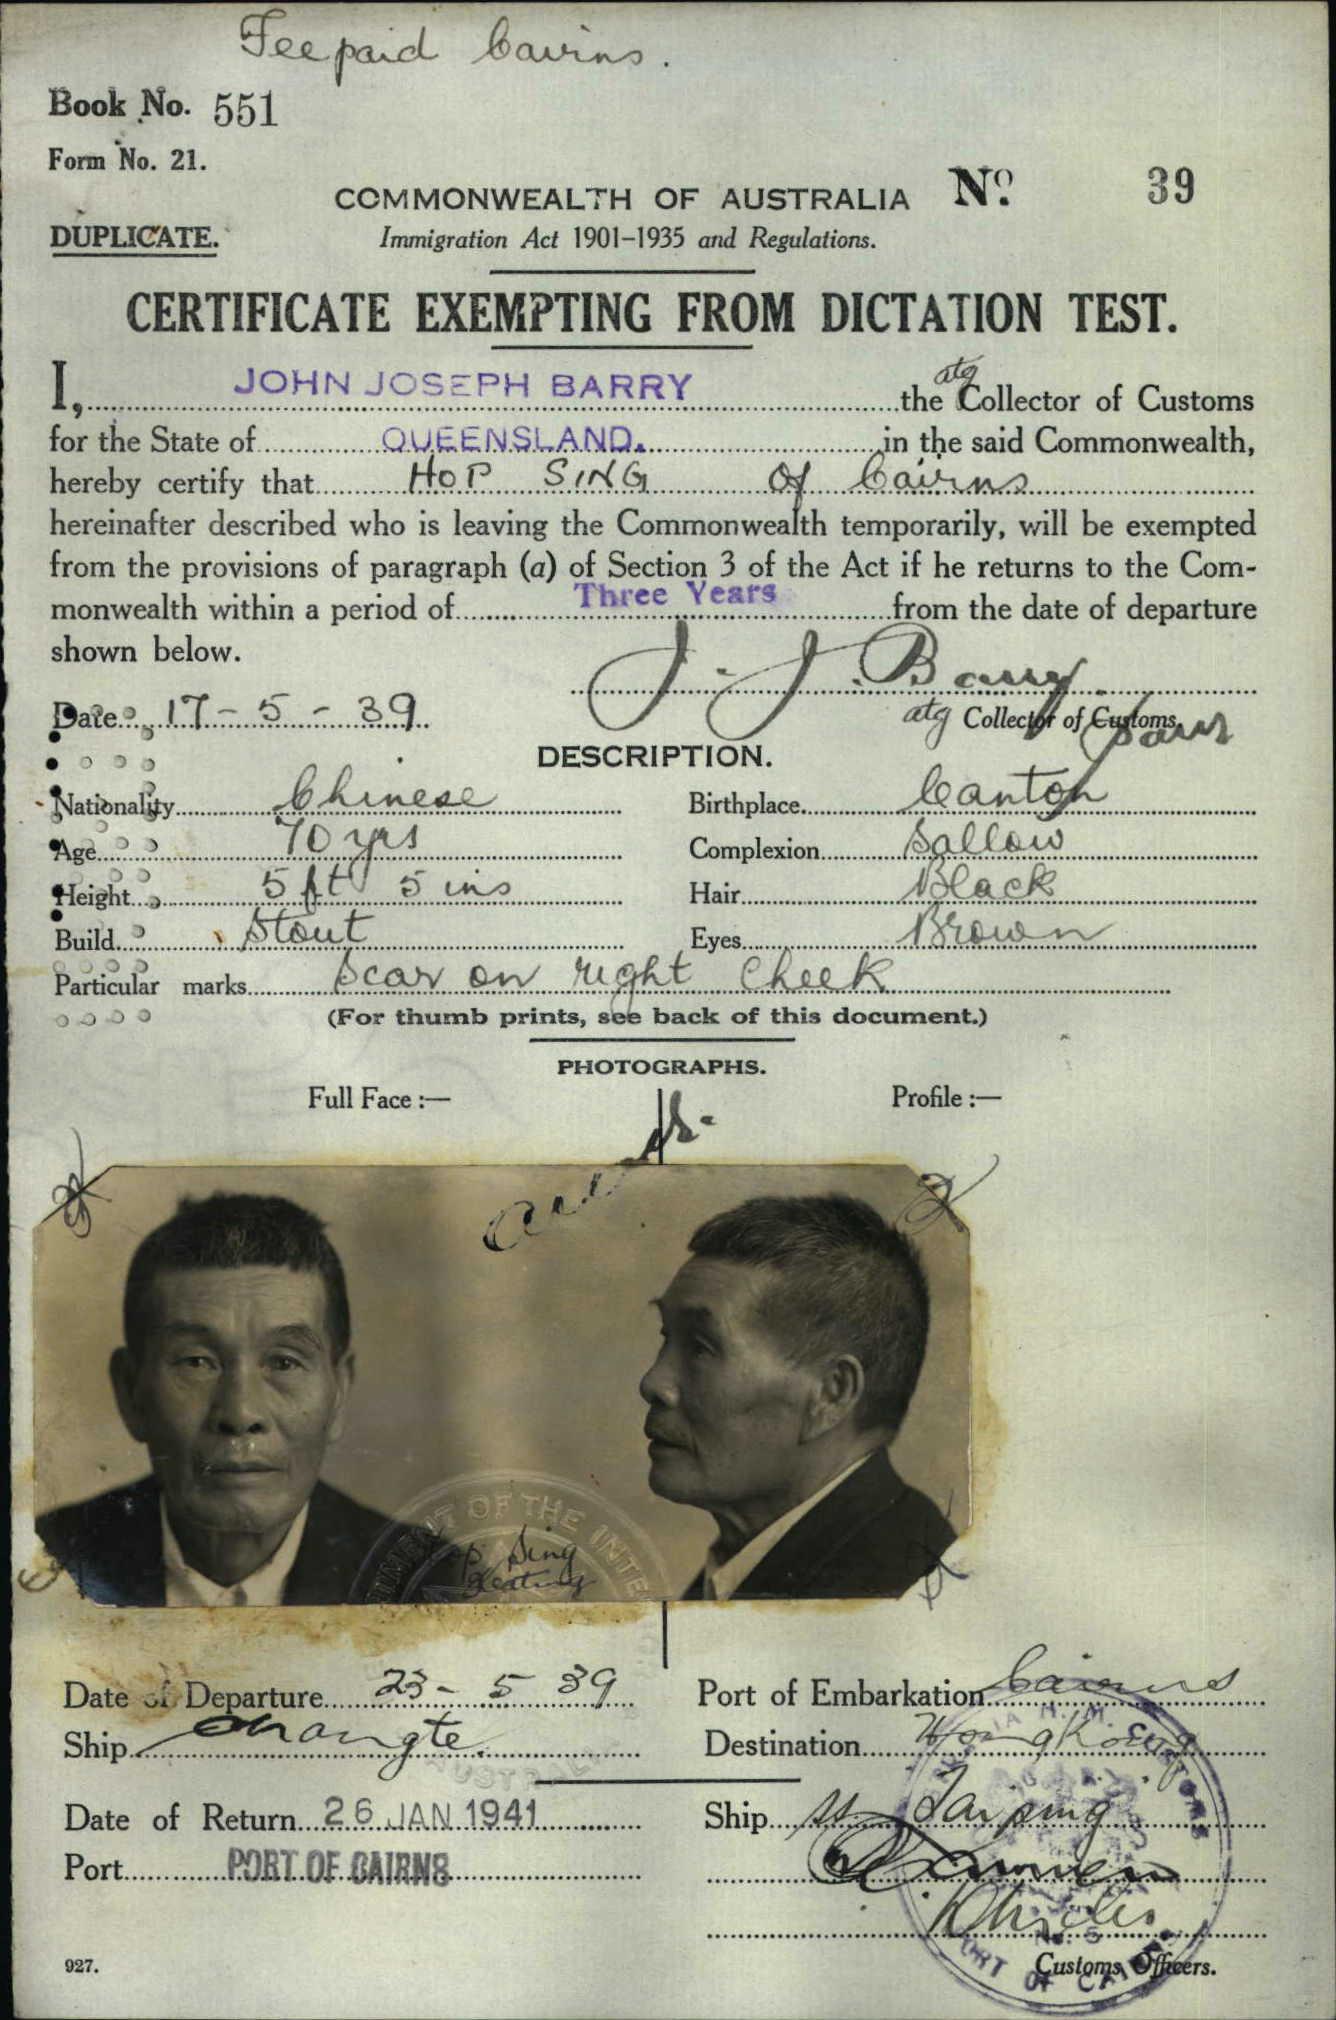 Fee paid Cairns.
Book No. 551
Form No. 21.
COMMONWEALTH OF AUSTRALIA No. 39
DUPLICATE.
Immigration Act 1901-1935 and Regulations.
CERTIFICATE EXEMPTING FROM DICTATION TEST.
I, JOHN JOSEPH BARRY the atg Collector of Customs
for the State of QUEENSLAND. in the said Commonwealth,
hereby certify that HOP SING of Cairns
hereinafter described who is leaving the Commonwealth temporarily, will be exempted
from the provisions of paragraph (a) of Section 3 of the Act if he returns to the Com-
monwealth within a period of Three Years from the date of departure
shown below.
J. J. Barry
Date 17-5-39
atg Collector of Customs
DESCRIPTION.
Nationality Chinese
Birthplace Canton
Age 70 yrs
Complexion Sallow
Height 5 ft 5 ins
Hair Black
Build Stout
Eyes Brown
Particular marks Scar on right cheek
(For thumb prints, see back of this document.)
PHOTOGRAPHS.
Full Face :—
Profile :—
OF THE
Hop Sing
Date of Departure 23-5 39
Port of Embarkation Cairns
Ship Changte.
Destination Hong Kong
Date of Return 26 JAN 1941
Ship ss. Taiping
Port PORT OF CAIRNS
H.M. CUSTOMS
No. 5
PORT OF CAIRNS
Customs Officers.
927.